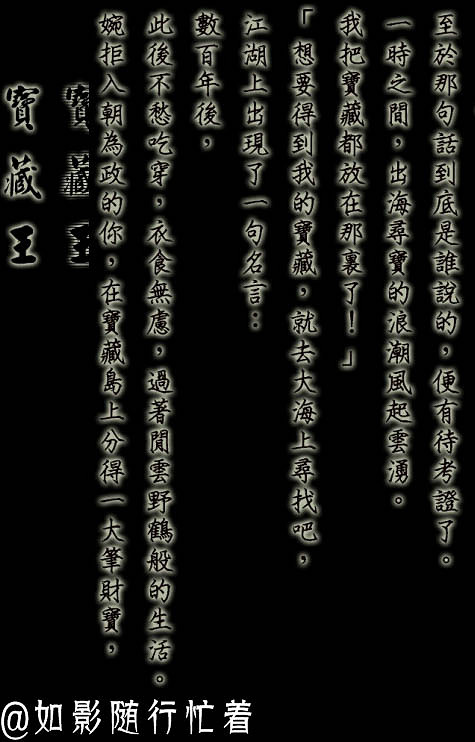 寶藏王
寶藏王
婉拒入朝為政的你，在寶藏島上分得一大筆財寶，
此後不愁吃穿，衣食無慮，過著閒雲野鶴般的生活。
數百年後，
江湖上出現了一句名言：
「想要得到我的寶藏，就去大海上尋找吧，
我把寶藏都放在那裏了！」
一時之間，出海尋寶的浪潮風起雲湧。
至於那句話到底是誰說的，便有待考證了。
@如影随行忙着